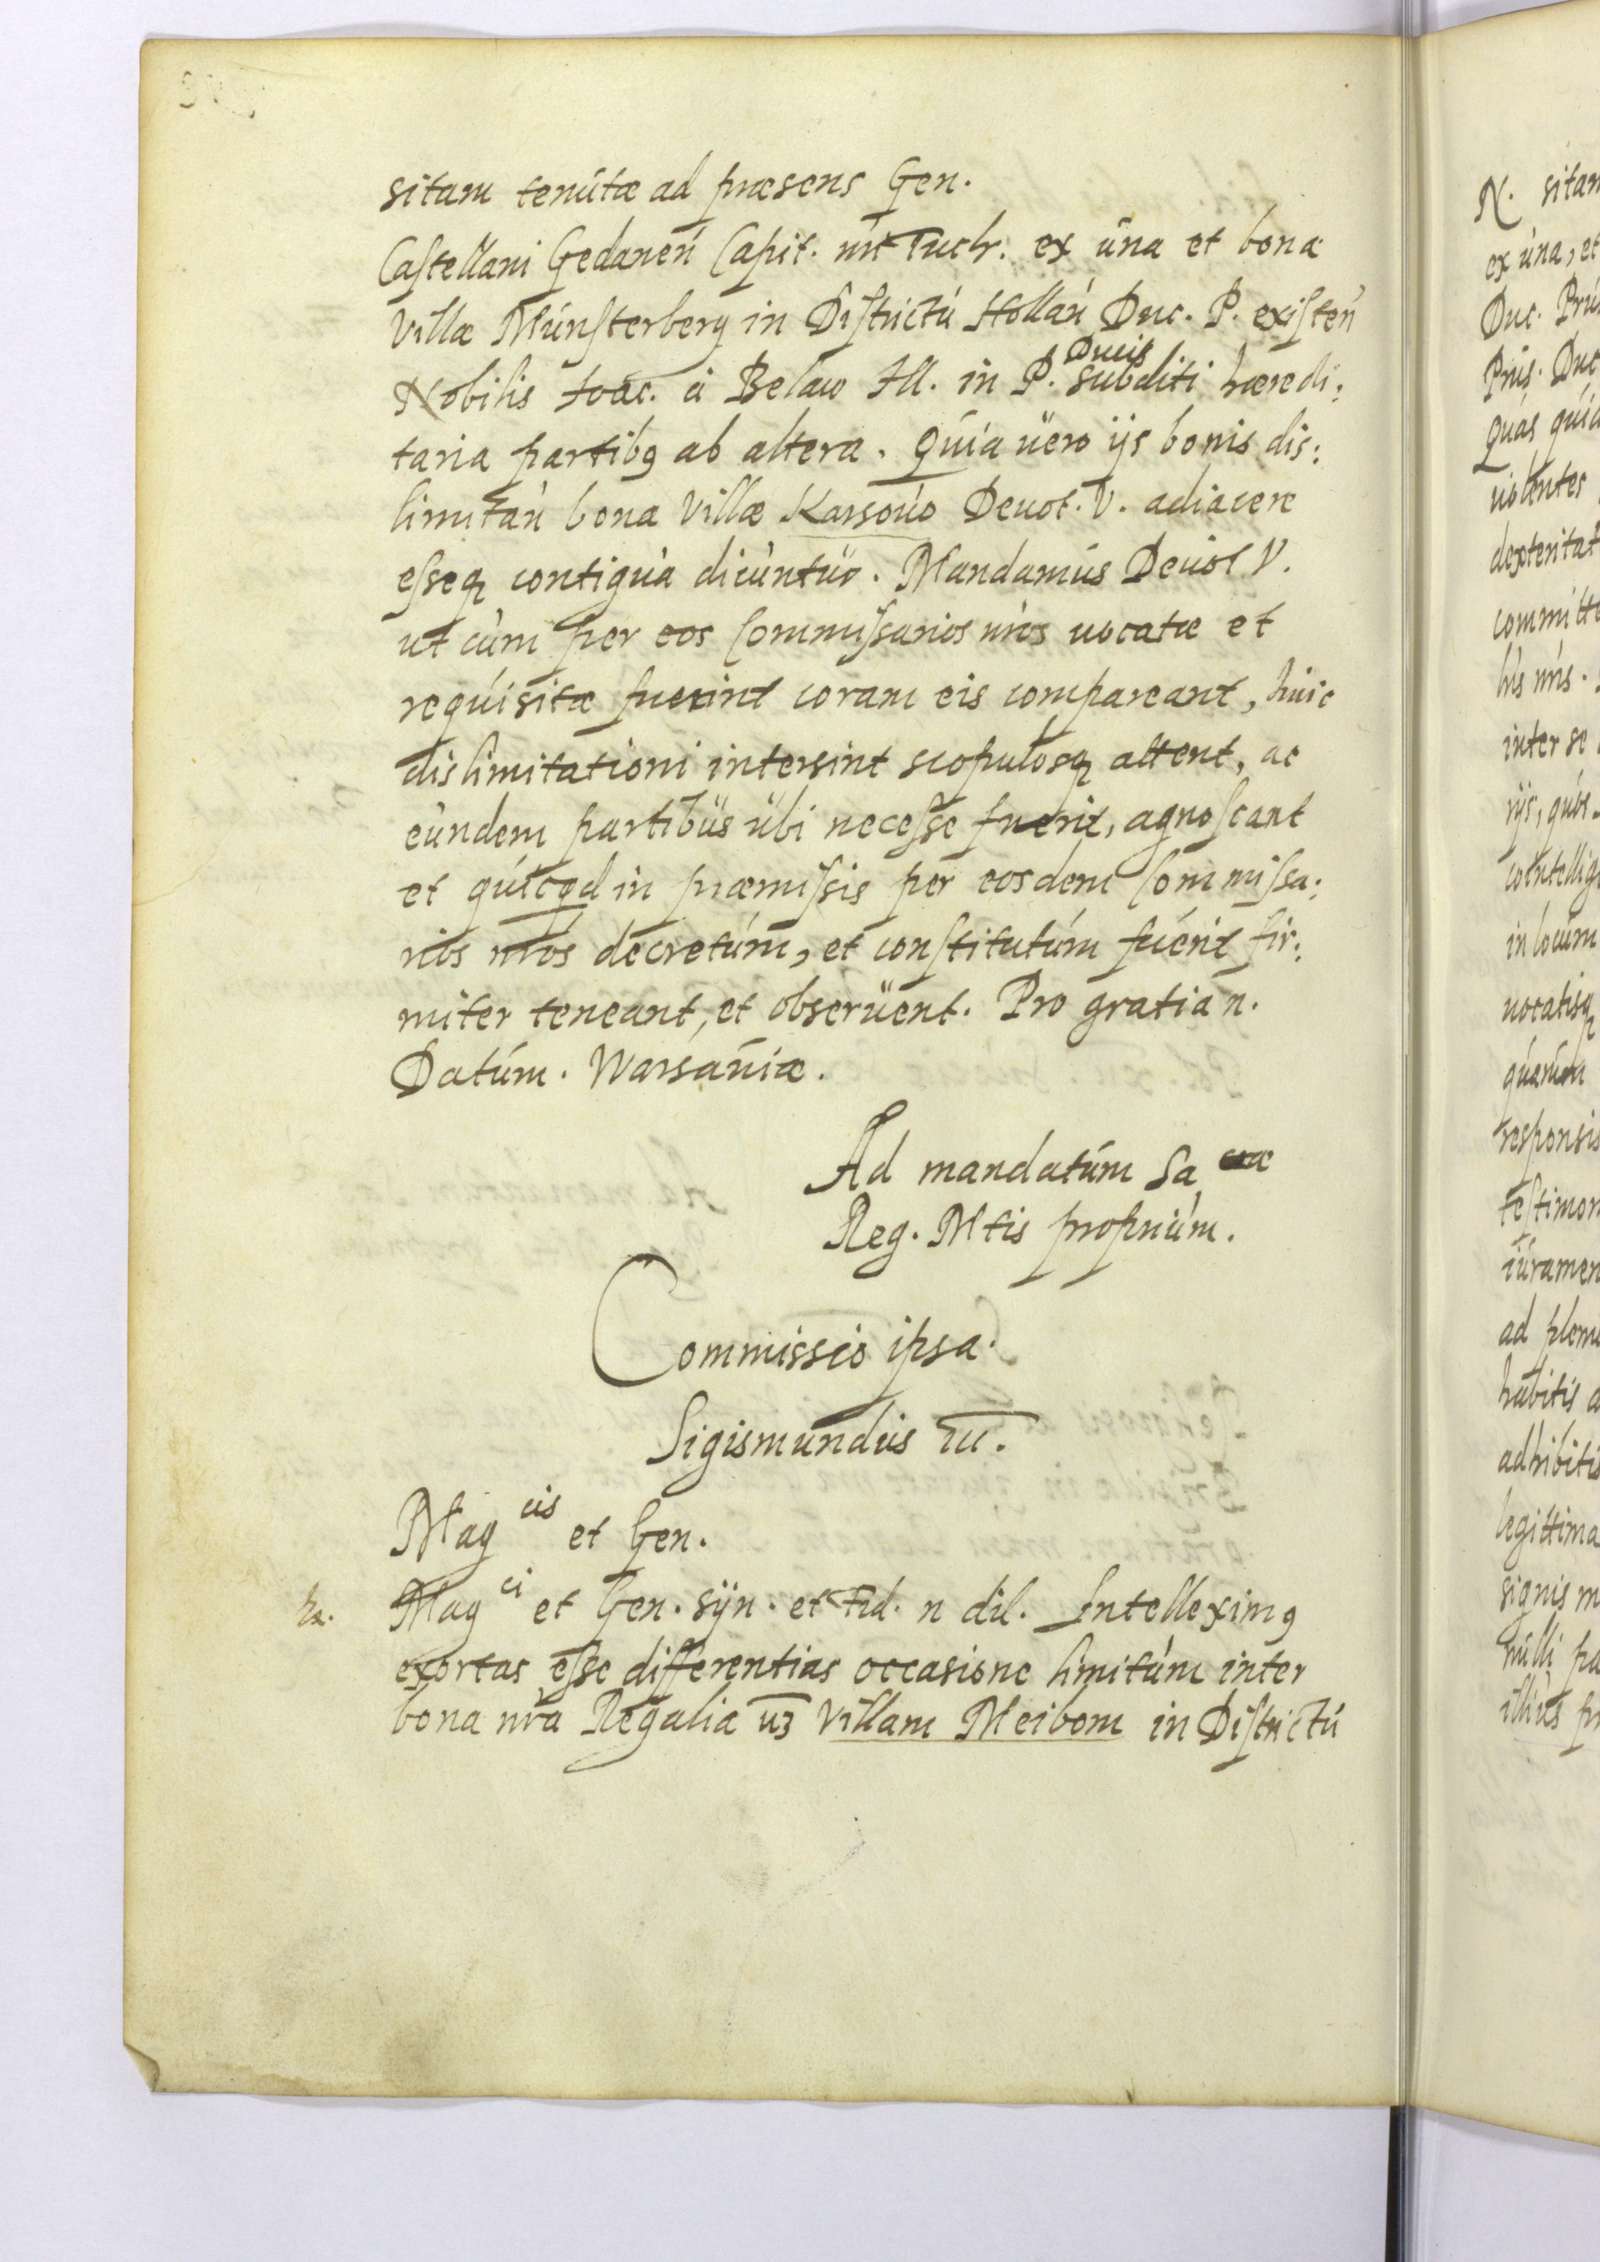 sitam tenutæ ad præsens Gen.
Castellani Gedanen Capit. nri Tuch. ex una et bona
Villæ Munsterberg in Districtu Hollan Duc. P. existen
Ducis
Nobilis Joac. à Belaw Ill. in P. subditi hæredi:
taria partibq ab altera. Quia uero ijs bonis dis:
limitan bona Villæ Karsouo Deuot. V. adiacere
esseq contigua dicuntur. Mandamus Deuot V.
ut cum per eos Commissarios nros uocatæ et
requisitæ fuerint coram eis compareant, huic
dislimitationi intersint scopulosq attent, ac
eundem partibus ubi necesse fuerit, agnoscant
et quicqd in præmissis per eosdem Commissa:
rios nros decretum, et constitutum fuerit fir:
miter teneant, et obseruent. Pro gratia n.
Datum. Warsauiæ.
Ad mandatum Sa
Reg. Mtis proprium.
Commissio ipsa.
Sigismundus III.
Mag cis et Gen.
Mag ci et Gen. syn. et fid. n dil. Intelleximq
exortas esse differentias occasione limitum inter
bona nra Regalia uz Villam Meibom in Districtu
N. sitam
ex una, et
Duc. Pru
Pris. Duc
quas quia
uolentes
dexteritat
committe
bis nris.
inter se
rijs, qubs
cointellig
in locum
uocatisq
quarum
responsis
testimon
iuramen
ad plen
habitis a
adhibitis
legittima
signis m
nulli pa
illius pr